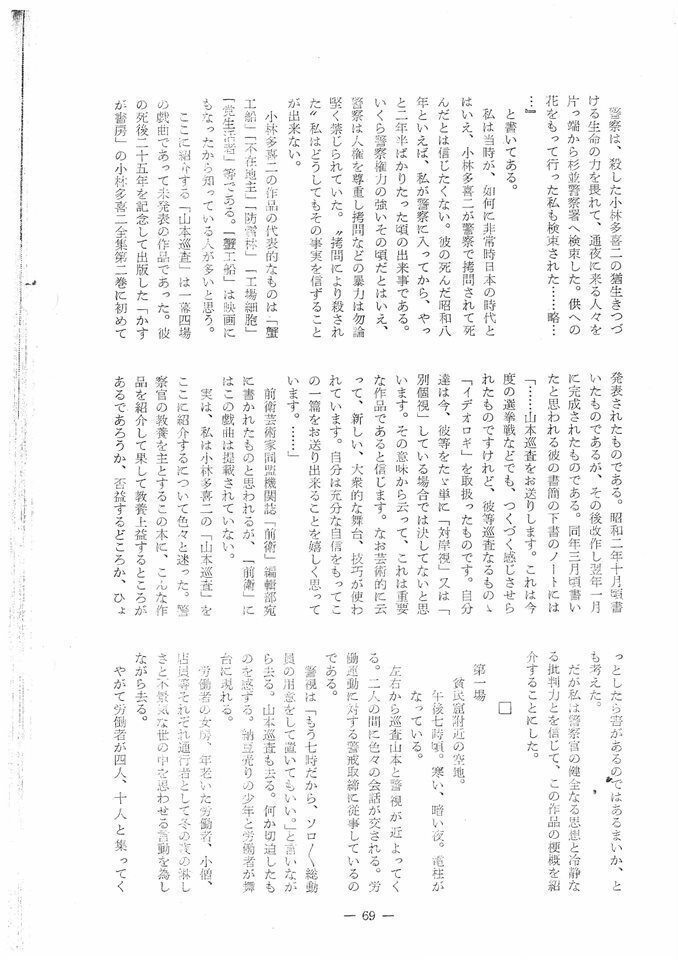 警察は、殺した小林多喜二の猶生きつづ
ける生命の力を畏れて、通夜に来る人々を
片っ端から杉並警察署へ検束した。供への
花をもって行った私も検束された……略…
…』
と書いてある。
私は当時が、如何に非常時日本の時代と
はいえ、小林多喜二が警察で拷問されて死
んだとは信じたくない。彼の死んだ昭和八
年といえば、私が警察に入ってから、やっ
と二年半ばかりたった頃の出来事である。
いくら警察権力の強いその頃だとはいえ、
警察は人権を尊重し拷問などの暴力は勿論
堅く禁じられていた。〝拷問により殺され
た〟私はどうしてもその事実を信ずること
が出来ない。
小林多喜二の作品の代表的なものは「蟹
工船」「不在地主」「防雪林」「工場細胞」
「党生活者」等である。「蟹工船」は映画に
もなったから知っている人が多いと思う。
ここに紹介する「山本巡査」は一幕四場
の戯曲であって未発表の作品であった。彼
の死後二十五年を記念して出版した「かす
が書房」の小林多喜二全集第二巻に初めて
発表されたものである。昭和二年十月頃書
いたものであるが、その後改作し翌年一月
に完成されたものである。同年三月頃書い
たと思われる彼の書簡の下書のノートには
「……山本巡査をお送りします。これは今
度の選挙戦などでも、つくづく感じさせら
れたものですけれど、彼等巡査なるものゝ
「イデオロギ」を取扱ったものです。自分
達は今、彼等をたゞ単に「対岸視」又は「
別個視」している場合では決してないと思
います。その意味から云って、これは重要
な作品であると信じます。なお芸術的に云
って、新しい、大衆的な舞台、技巧が使わ
れています。自分は充分な自信をもってこ
の一篇をお送り出来ることを嬉しく思って
います。……」
前衛芸術家同盟機関誌「前衛」編輯部宛
に書かれたものと思われるが、「前衛」に
はこの戯曲は掲載されていない。
実は、私は小林多喜二の「山本巡査」を
ここに紹介するについて色々と迷った。警
察官の教養を主とするこの本に、こんな作
品を紹介して果して教養上益するところが
あるであろうか、否益するどころか、ひょ
っとしたら害があるのではあるまいか、と
も考えた。
だが私は警察官の健全なる思想と冷静な
る批判力とを信じて、この作品の梗概を紹
介することにした。
□
第一場
貧民窟附近の空地。
午後七時頃。寒い、暗い夜。電柱が
なっている。
左右から巡査山本と警視が近よってく
る。二人の間に色々の会話が交される。労
働運動に対する警戒取締に従事しているの
である。
警視は「もう七時だから、ソロ〳〵総動
員の用意をして置いてもいい。」と言いなが
ら去る。山本巡査も去る。何か切迫したも
のを感ずる。納豆売りの少年と労働者が舞
台に現れる。
労働者の女房、年老いた労働者、小僧、
店員等それぞれ通行者として冬の夜の淋し
さと不景気な世の中を思わせる言動を為し
ながら去る。
やがて労働者が四人、十人と集ってく
— 69 —